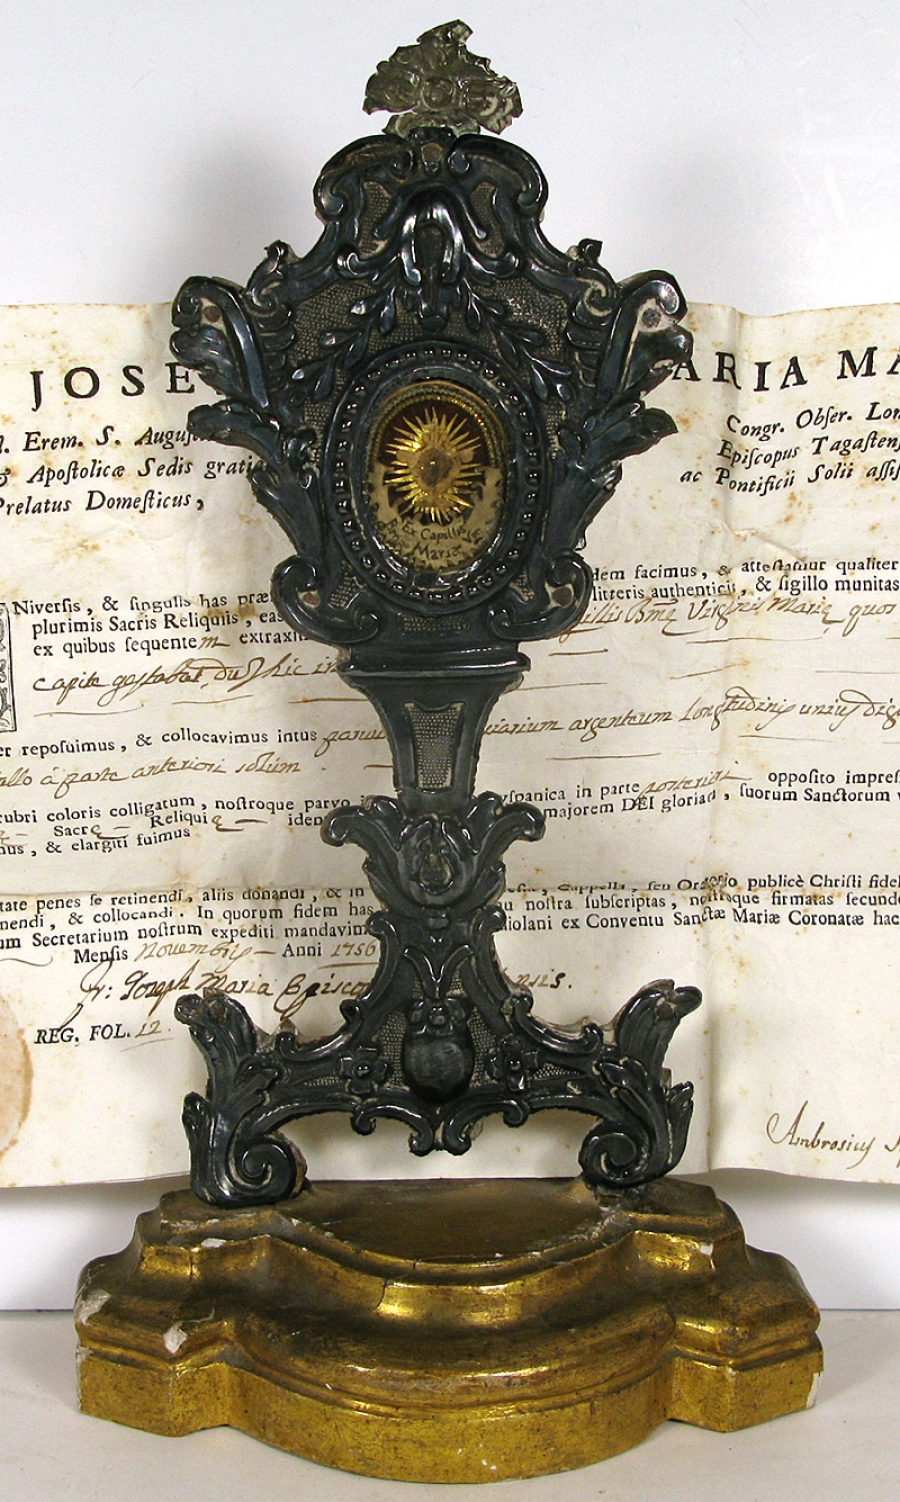 JOSE ARIA MA
Erem. S. Augus Congr. Obser. Lon
Apostolicæ Sedis grati Episcopus Tagasten
Prelatus Domesticus, ac Pontificii Solii assis
Niversis, & singulis has præ dem facimus, & attestamur qualiter
plurimis Sacris Reliquiis, eas litteris authenticis, & sigillo munitas
ex quibus sequentem extraxi illis Bmę Virginis Marię quos
capite gestabat, du hic in
er reposuimus, & collocavimus intus parvu uarium argenteum longitudinis unius digi
allo à parte anteriori solum
rubri coloris colligatum, nostroque parvo yspanica in parte posteriori opposito impres
Sacrę Reliquię iden majorem DEI gloriam, suorum Sanctorum v
us, & elargiti fuimus
tate penes se retinendi, aliis donandi, & in Cappella, seu Oratorio publicè Christi fidel
nendi, & collocandi. In quorum fidem has nu nostra subscriptas, nostroque firmatas secund
um Secretarium nostrum expediti mandavim diolani ex Conventu Sanctæ Mariæ Coronatæ hac
Mensis Novembris Anni 1756
Fr: Joseph Maria Episco nsis.
REG. FOL. 12.
Ambrosius
Ex Capillis
Mariæ